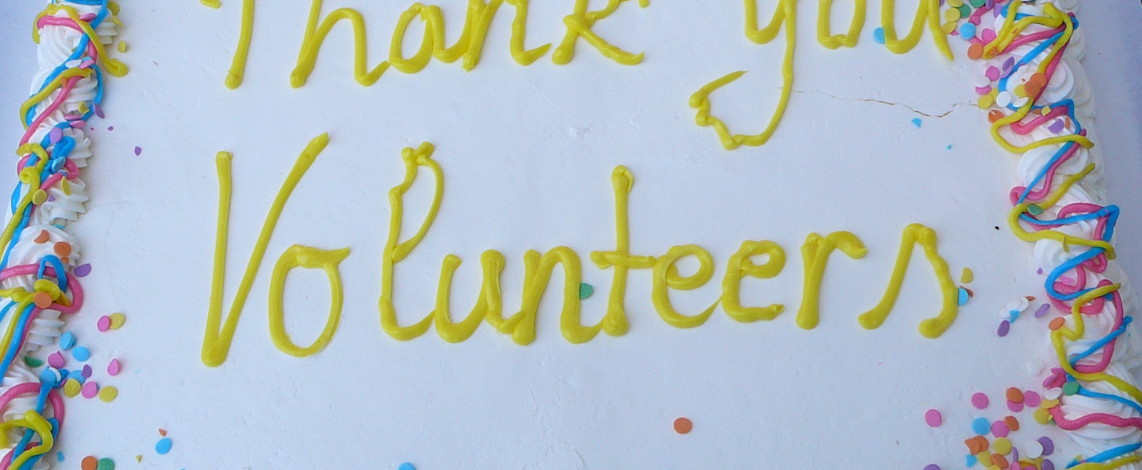 Thank you
Volunteers